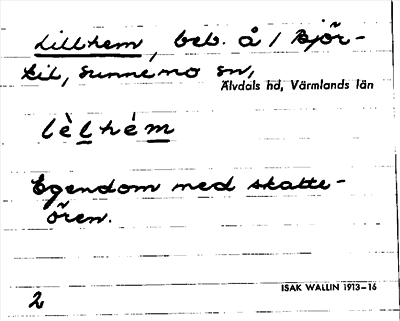 Lillhem, beb. å 1 Björ-
bil, Sunnemo sn,
Älvdals hd, Värmlands län
lèlhém
Egendom med skatte-
ören.
ISAK WALLIN 1913–16
2